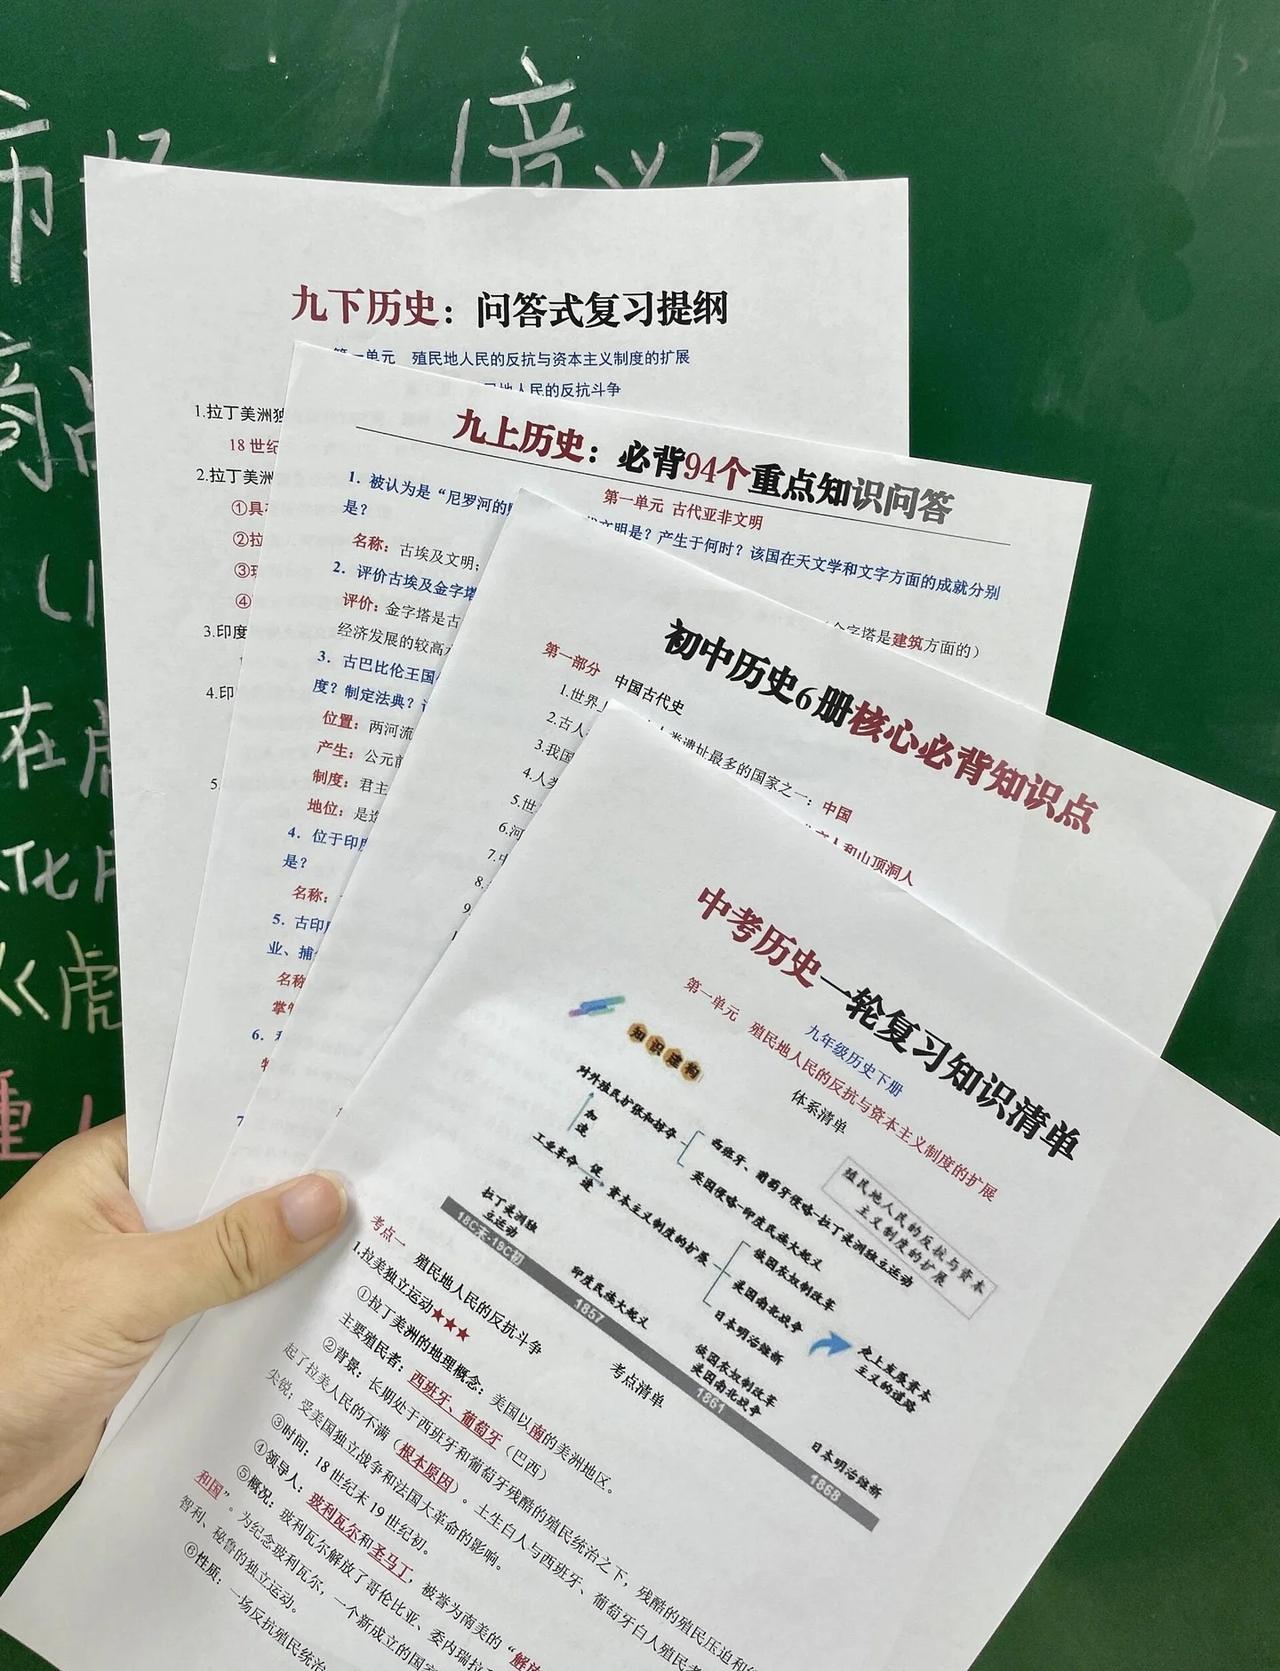 倍
九下历史：问答式复习提纲
第一单元 殖民地人民的反抗与资本主义制度的扩展
民地人民的反抗斗争
1.拉丁美洲独
18世纪
2.拉丁美洲
①具有
②拉
③玻
④
3.印度
4.印
5
九上历史：必背94个重点知识问答
第一单元 古代亚非文明
1. 被认为是“尼罗河的
文明是？产生于何时？该国在天文学和文字方面的成就分别
是？
名称：古埃及文明；
2. 评价古埃及金字塔
金字塔是建筑方面的）
评价：金字塔是古
经济发展的较高水
3. 古巴比伦王国
度？制定法典？
位置：两河流
产生：公元前
制度：君主
地位：是迄
4. 位于印度
是？
名称：
5. 古印度
业、捕
名称
掌
6.
7
初中历史6册核心必背知识点
第一部分 中国古代史
1.世界
人类遗址最多的国家之一：中国
2.古人
人和山顶洞人
3.我国
4.人类
5.世
6.河
7.中
8.
9.
中考历史一轮复习知识清单
九年级历史下册
第一单元 殖民地人民的反抗与资本主义制度的扩展
体系清单
知识建构
对外殖民扩张和掠夺
加速
工业革命
促进
资本主义制度的扩展
西班牙、葡萄牙侵略-拉丁美洲独立运动
英国侵略-印度民族大起义
俄国农奴制改革
美国南北战争
日本明治维新
殖民地人民的反抗与资本
主义制度的扩展
走上发展资本
主义的道路
拉丁美洲独
立运动
18C末-19C初
印度民族大起义
1857
俄国农奴制改革
美国南北战争
1861
日本明治维新
1868
考点清单
考点一 殖民地人民的反抗斗争
1.拉美独立运动★★★
①拉丁美洲的地理概念：美国以南的美洲地区。
主要殖民者：西班牙、葡萄牙（巴西）
②背景：长期处于西班牙和葡萄牙残酷的殖民统治之下，残酷的殖民压迫和
起了拉美人民的不满（根本原因）。土生白人与西班牙、葡萄牙白人殖民者
尖锐；受美国独立战争和法国大革命的影响。
③时间：18世纪末19世纪初。
④领导人：玻利瓦尔和圣马丁，被誉为南美的“解放
⑤概况：玻利瓦尔解放了哥伦比亚、委内瑞拉
和国”。为纪念玻利瓦尔，一个新成立的国家
智利、秘鲁的独立运动。
⑥性质：一场反抗殖民统治